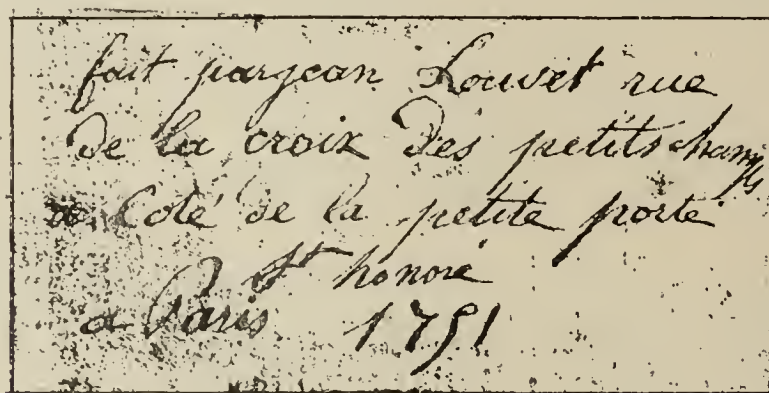 fait parjean Louvet rue
de la croix des petits champs
a Coté de la petite porte
St honoré
a Paris 1751